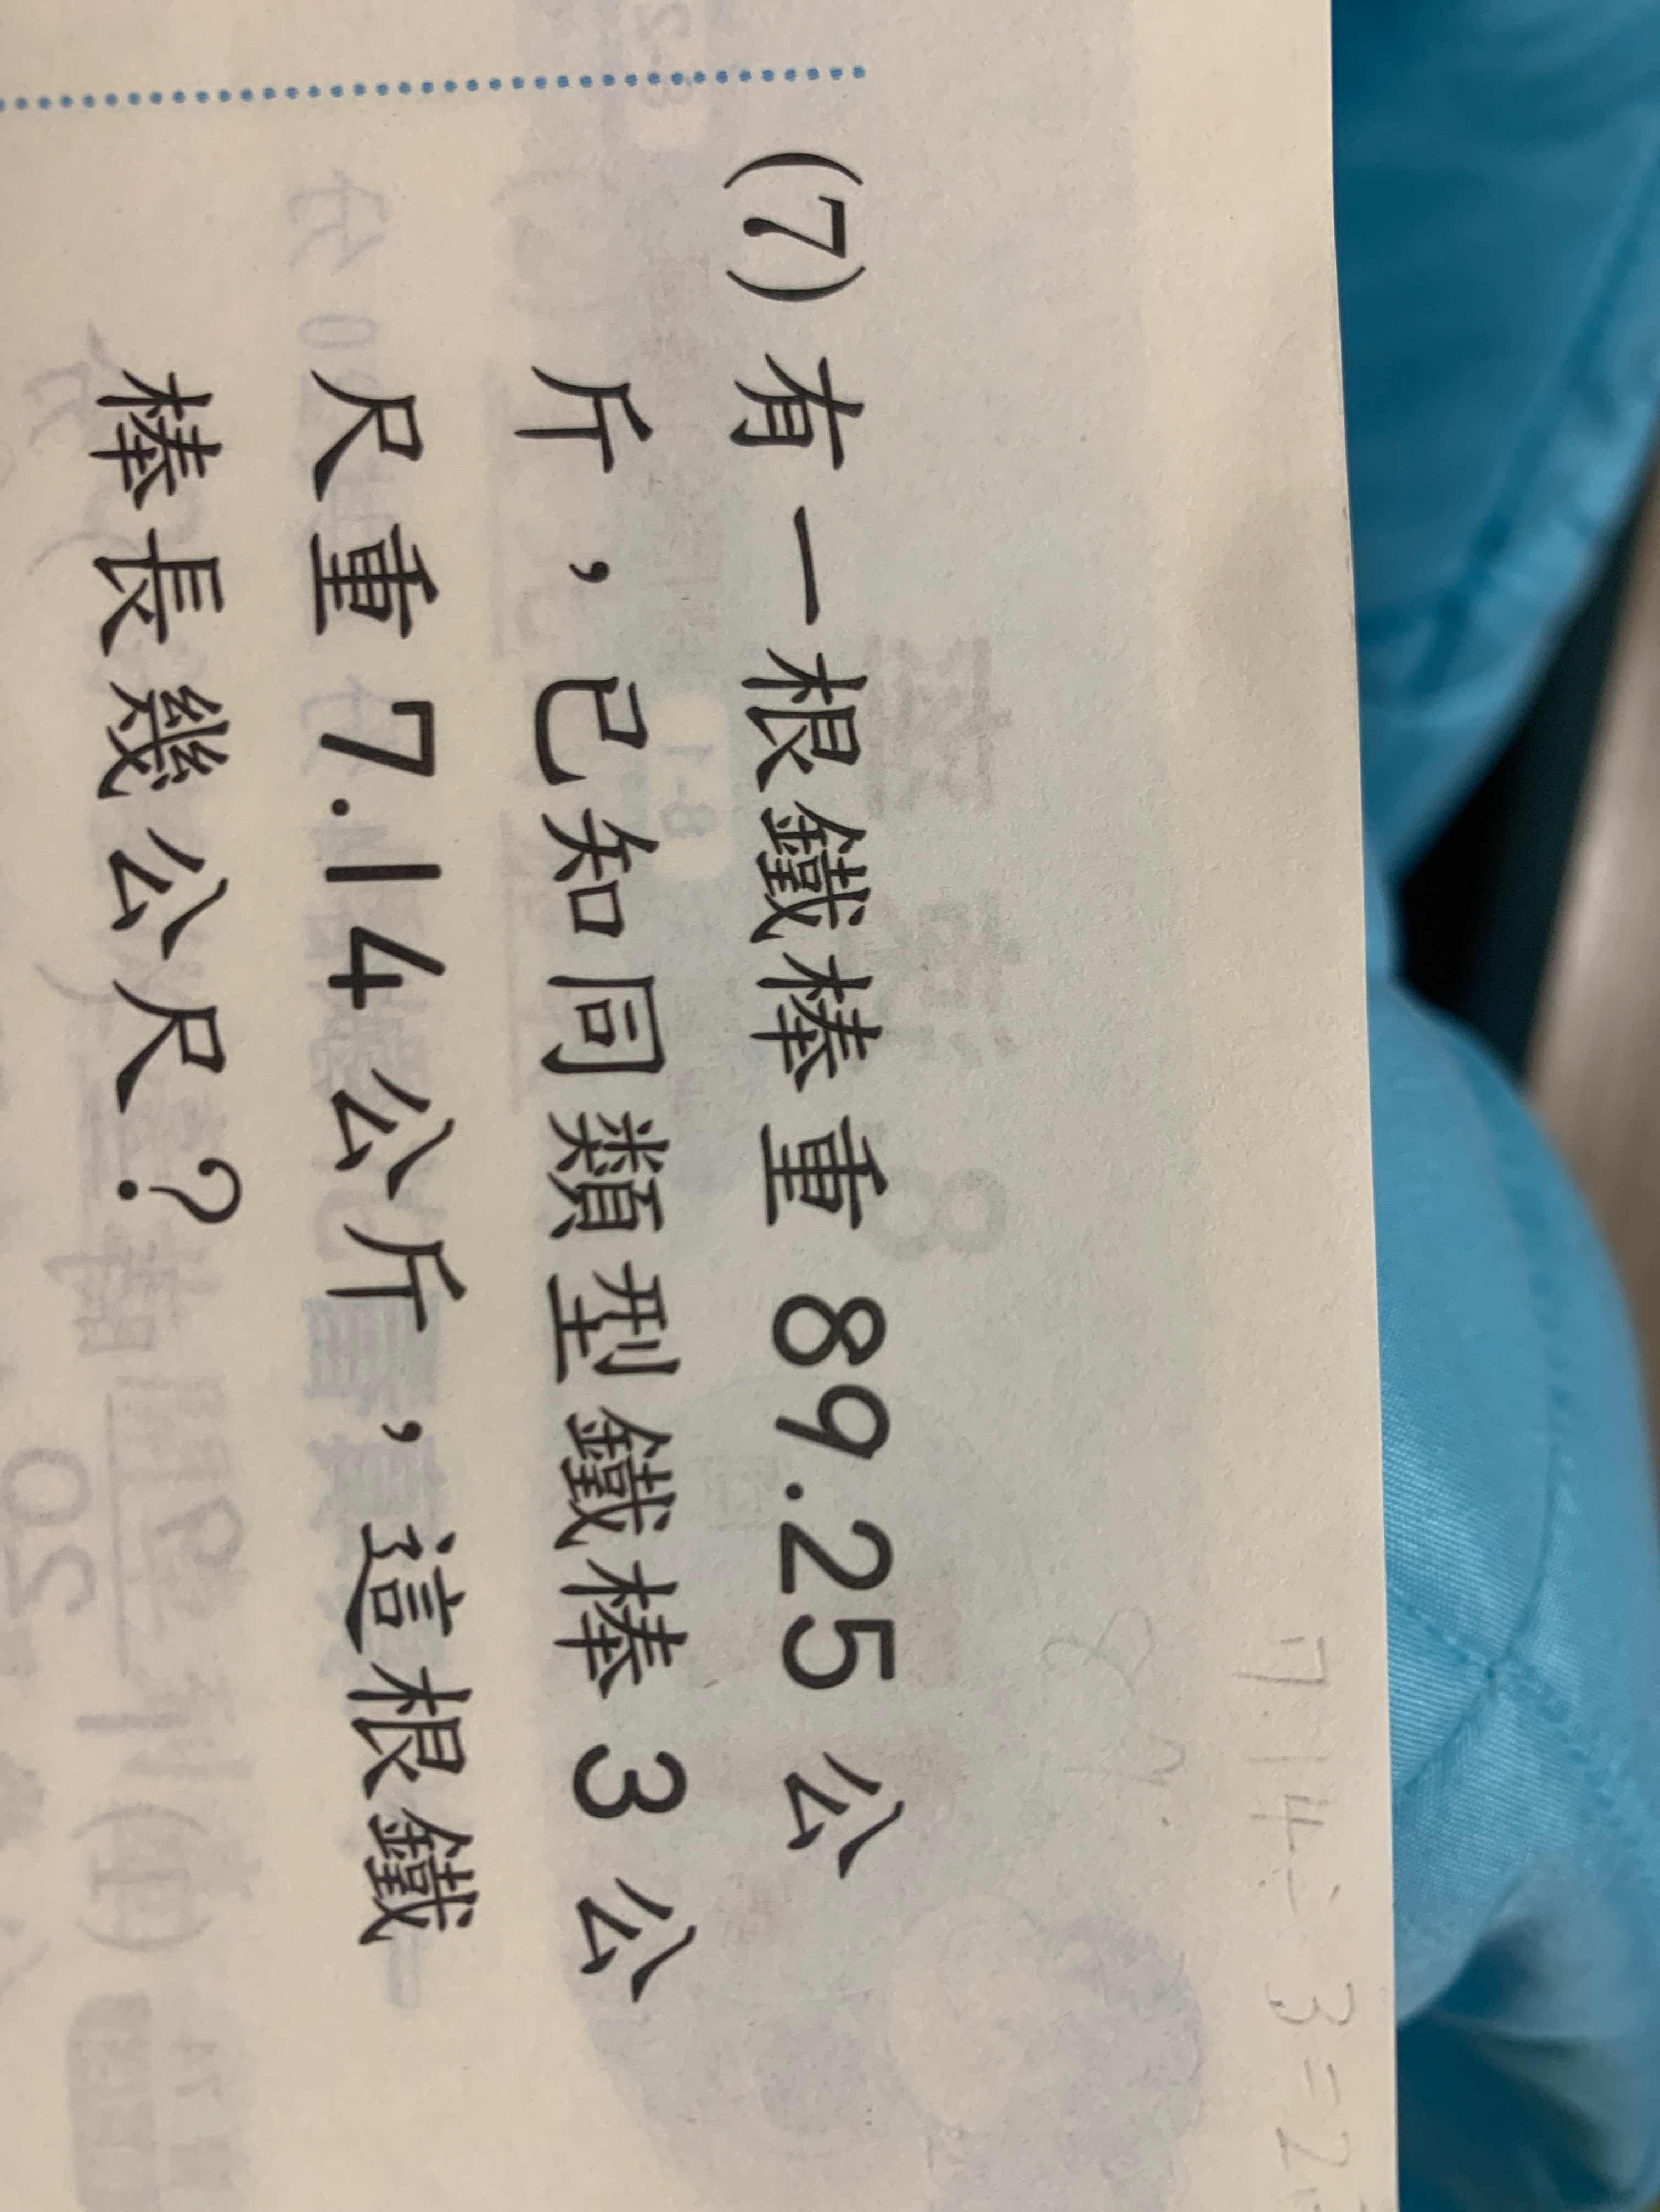 7.14÷3=2
(7) 有一根鐵棒重 89.25 公
斤，已知同類型鐵棒 3 公
尺重 7.14 公斤，這根鐵
棒長幾公尺？